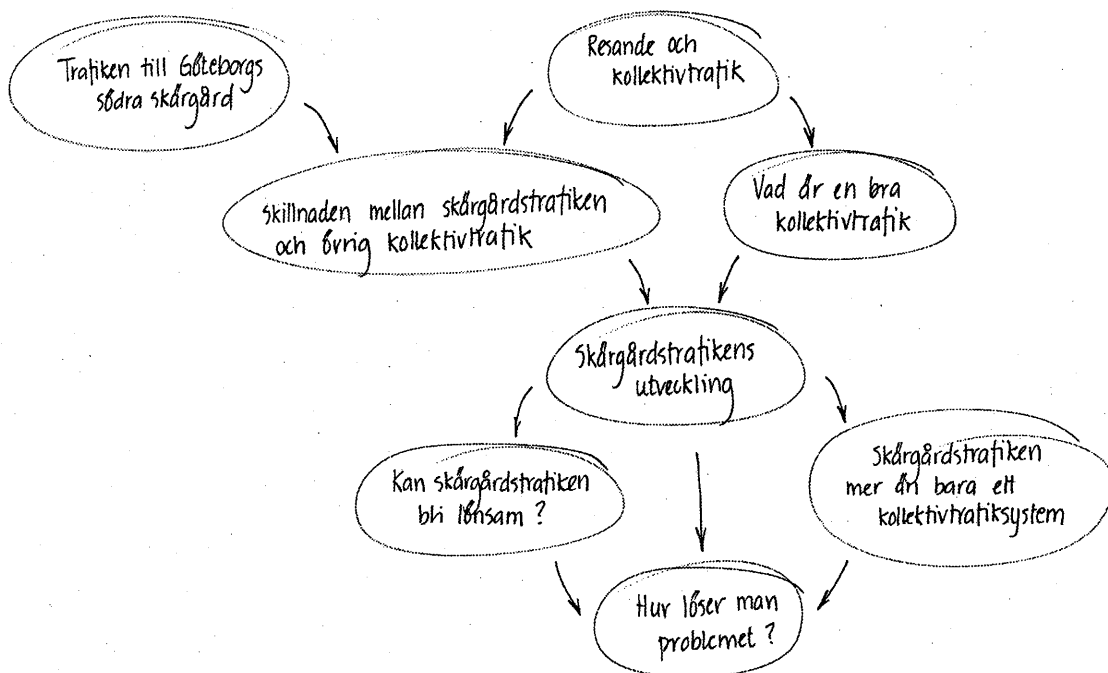 Trafiken till Göteborgs
södra skärgård
Resande och
kollektivtrafik
Skillnaden mellan skärgårdstrafiken
och övrig kollektivtrafik
Vad är en bra
kollektivtrafik
Skärgårdstrafikens
utveckling
Kan skärgårdstrafiken
bli lönsam ?
Skärgårdstrafiken
mer än bara ett
kollektivtrafiksystem
Hur löser man
problemet ?